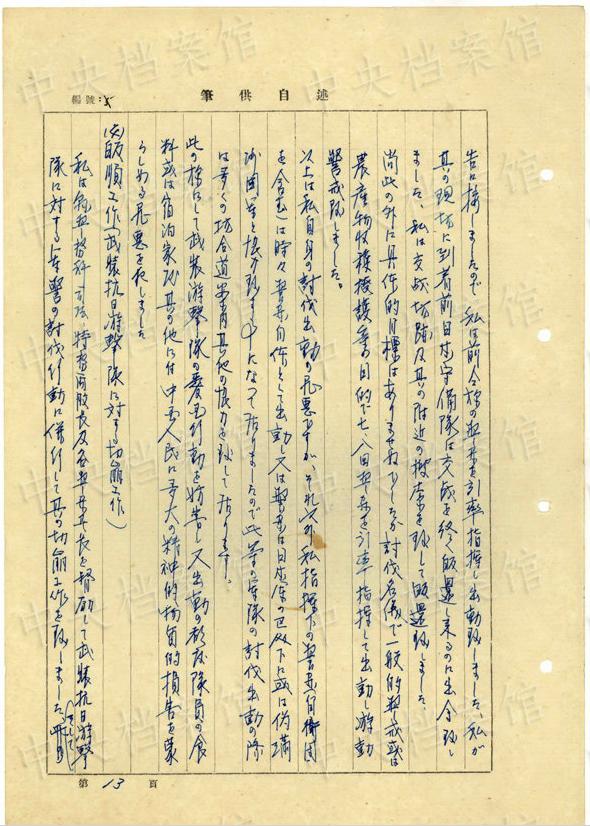 述自供筆
編號:
告に接しましたので 私は前令標の警察を引率指揮し出動致しました、私が
其の現場に到着前日本守備隊は交戦を終へ皈還し来るのに出会致し
ました、私は交戦場跡及其の附近の捜索を致して皈還致しました。
尚此の外に具体的目標はありませぬでしたが討伐名儀で一般的警戒或は
農産物收穫援護等の目的で七、八回警察を引率指揮して出動し游動
警戒致しました。
以上は私自身の討伐出動の罪悪ですが、それ以外私指揮下の警察自衛団
を含む は時々警察自体として出動し又は警察は日本軍の 下に或は偽満
国軍と協力致す になって居りましたので此等の軍隊の討伐出動の際
は多くの場合道案内其他の協力を致して居ります。
此の様にして武装游撃隊の愛国行動を妨害し又出動の都度隊員の食
料或は宿泊家 其の他に付中国人民に多大の精神的物質的損害を蒙
らしめる罪悪を犯しました
皈順工作(武装抗日游撃隊に対する切崩工作)
私は 特務 股長及各警察 長を督励して武装抗日游撃
隊に対する軍警の討伐行動に併行して其の切崩工作を致しました、
第 13 頁
中央档案馆